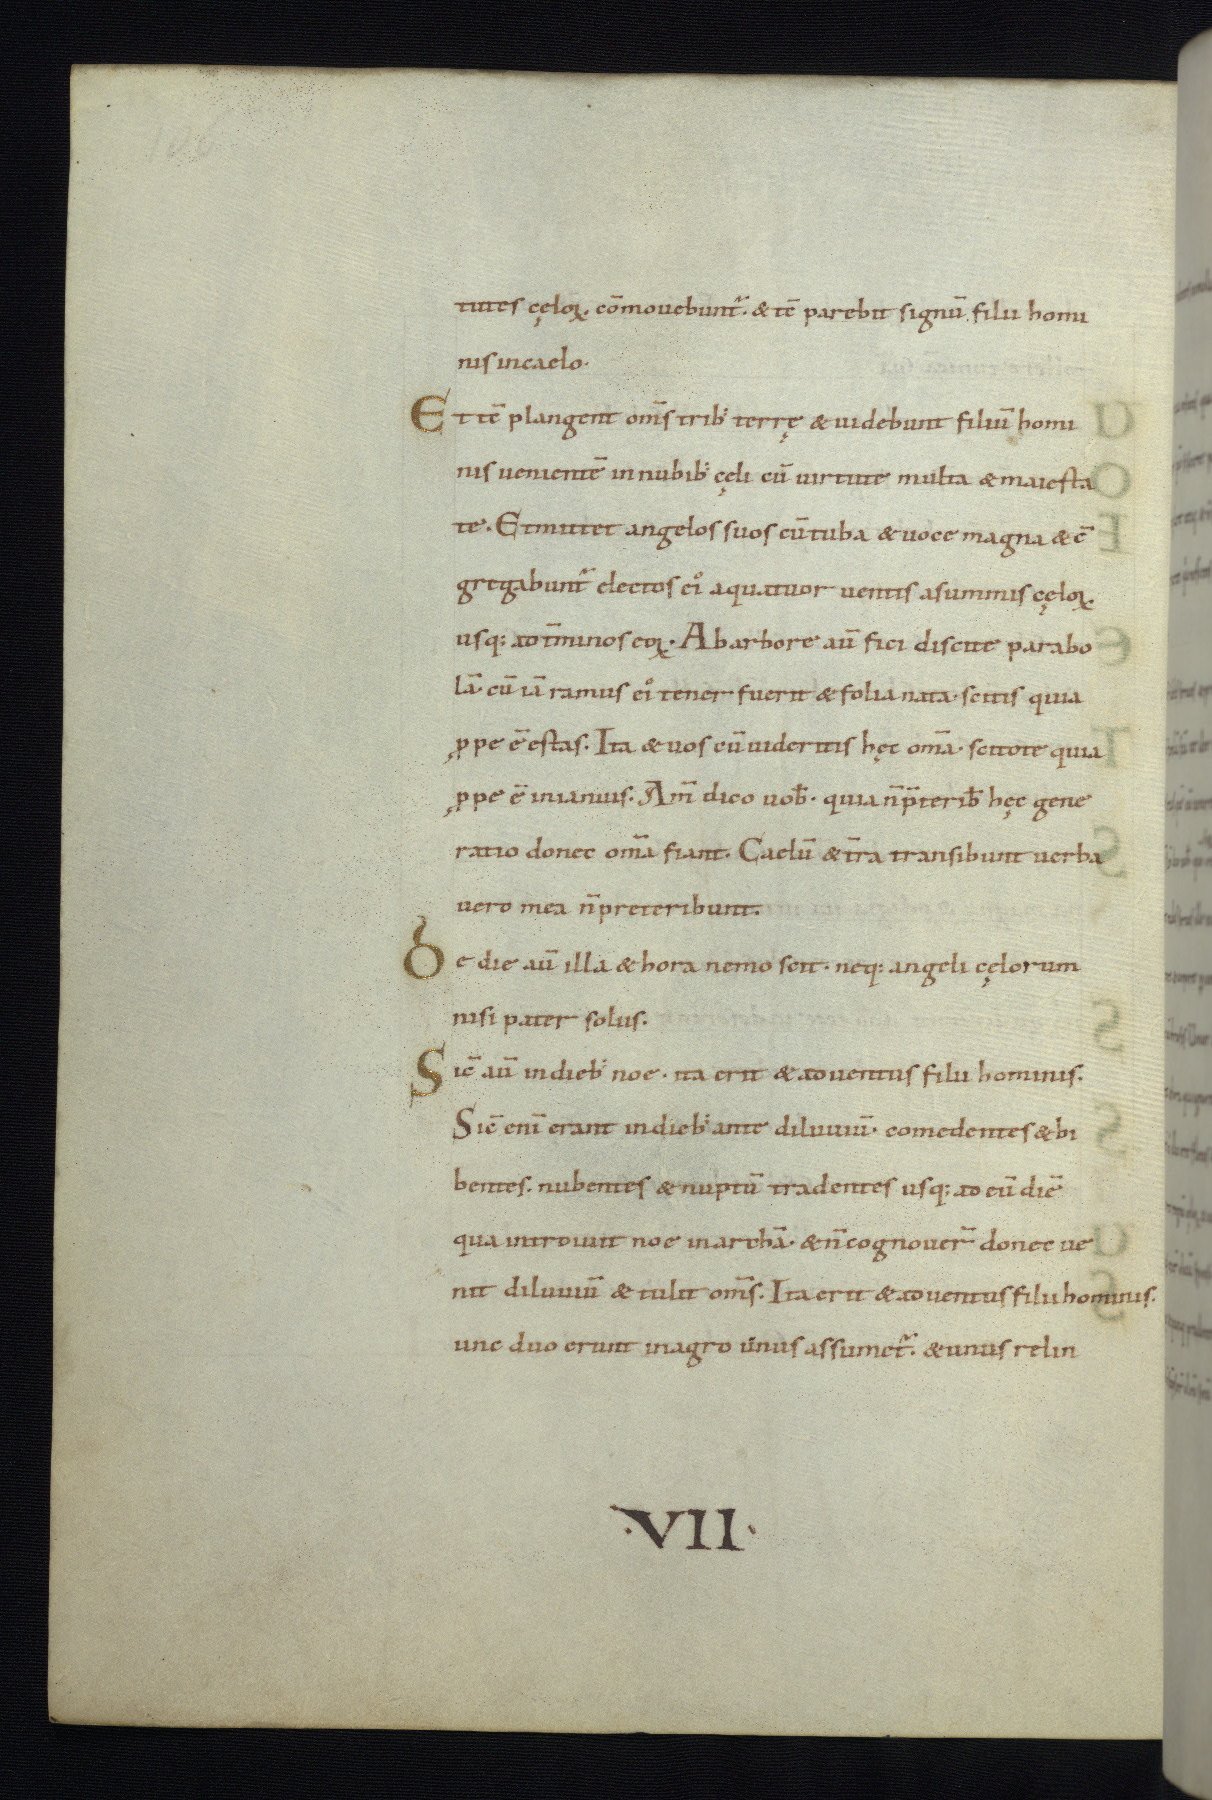 tutes cęloꝝ. cōmouebunt᷑. & tc̄ parebit signū filii homi
nis in caelo.
Et tc̄ plangent om̄s trib; terrę & uidebunt filiū homi
nis uenientē in nubib; cęli cū uirtute multa & maiesta
te. Et mittet angelos suos cū tuba & uoce magna & c̄
gregabunt᷑ electos ei᷒ a quattuor uentis a summis cęloꝝ.
usq; ad t̄minos eoꝝ. Ab arbore aū fici discite parabo
lā. cū iā ramus ei᷒ tener fuerit & folia nata. scitis quia
ꝓpe ē estas. Ita & uos cū uideritis hęc om̄a. scitote quia
ꝓpe ē in ianuis. Am̄ dico uob̄. quia n̄ p̄terib̄ hęc gene
ratio donec om̄a fiant. Caelū & t̄ra transibunt uerba
uero mea n̄ preteribunt.
De die aū illa & hora nemo scit. neq; angeli cęlorum
nisi pater solus.
Sic̄ aū in dieb; noe. ita erit & aduentus filii hominis.
Sic̄ enī erant in dieb; ante diluuiū. comedentes & bi
bentes. nubentes & nuptū tradentes usq; ad eū diē
qua introiuit noe in archā. & n̄ cognouer̄ donec ue
nit diluuiū & tulit om̄s. Ita erit & aduentus filii hominis.
unc duo erunt in agro unus assumet᷑. & unus relin
·VII·